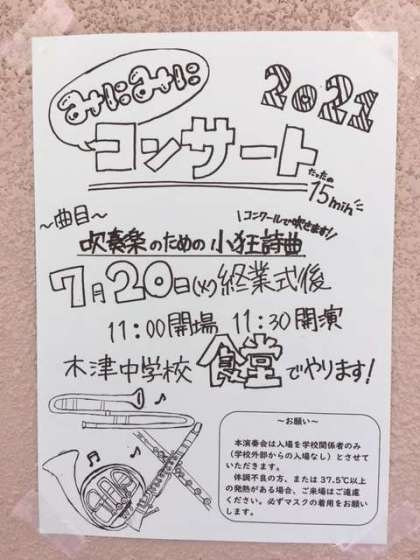 みにみに
2021
コンサート
たったの
15min
〜曲目〜
コンクールで吹きます!
吹奏楽のための小狂詩曲
7月20日(火)終業式後
11:00開場 11:30開演
木津中学校 食堂でやります!
〜お願い〜
本演奏会は入場を学校関係者のみ
(学校外部からの入場なし)とさせて
いただきます。
体調不良の方、または37.5℃以上
の発熱がある場合、ご来場はご遠慮
ください。必ずマスクの着用をお願い
します。